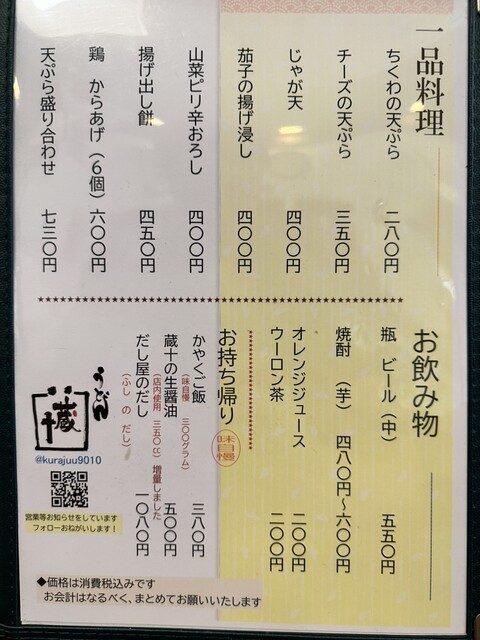 一品料理
ちくわの天ぷら 二八〇円
チーズの天ぷら 三五〇円
じゃが天 四〇〇円
茄子の揚げ浸し 四〇〇円
山菜ピリ辛おろし 四〇〇円
揚げ出し餅 四五〇円
鶏 からあげ(6個) 六〇〇円
天ぷら盛り合わせ 七三〇円
お飲み物
瓶 ビール(中) 五五〇円
焼酎 (芋) 四八〇円〜六〇〇円
オレンジジュース 二〇〇円
ウーロン茶 二〇〇円
お持ち帰り
味自慢
かやくご飯 三八〇円
(味自慢 三〇〇グラム)
蔵十の生醤油 五〇〇円
(店内使用 三五〇cc)増量しました
だし屋のだし 一〇八〇円
(ふし の だし)
うどん
蔵十
@kurajuu9010
営業等お知らせをしています
フォローおねがいします!
◆価格は消費税込みです
お会計はなるべく、まとめてお願いいたします